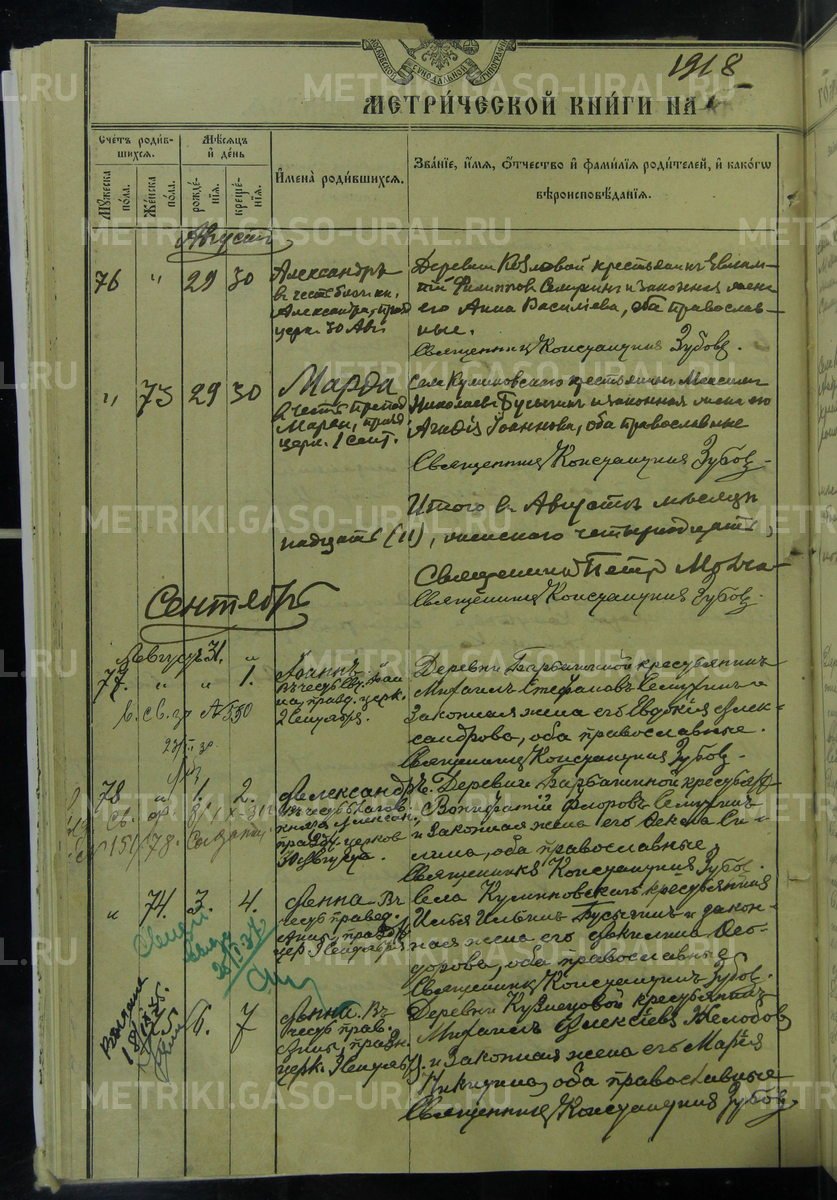 МОСКОВСКОЙ СѴНОДАЛЬНОЙ ТИПОГРАФІИ
1918
МЕТРИ́ЧЕСКОЙ КНИ́ГИ НА
Сче́тъ роди́в-
шихсѧ.
Мꙋ́жеска по́ла.
Же́нска по́ла.
Мѣ́сѧцъ
и҆ де́нь
рожде́-
нїѧ.
креще́-
нїѧ.
И҆мена̀ роди́вшихсѧ.
Зва́нїе, и҆́мѧ, ѻ҆́тчество и҆ фами́лїѧ роди́телей, и҆ како́гѡ
вѣроисповѣ́данїѧ.
Августъ
76 " 29 30
Александръ
въ честь благ. кн.
Александра, празд.
церк. 30 Авг.
Деревни Козловой крестьянинъ Евлам-
пій Филипповъ и законная жена
его Анна Василіева, оба православ-
ные.
Священникъ Константинъ Зубовъ.
" 73 29 30
Марѳа
въ честь препод.
празд.
церк. 1 Сент.
Села Куминовскаго крестьянинъ Максимъ
Николаевъ Бусыгинъ и законная жена его
Агафія Іоаннова, оба православные
Священникъ Константинъ Зубовъ.
Итого въ Августѣ мѣсяцѣ
надцать (11), женскаго четырнадцать,
Священникъ Петръ
Священникъ Константинъ Зубовъ.
Сентябрь
Августъ 31. "
77. " " 1.
Іоаннъ
въ честь Іоан
на, празд. церк.
2 Сентября.
Деревни крестьянинъ
Михаилъ Стефановъ и
законная жена его Евдокія Алек-
сандрова, оба православные.
Священникъ Константинъ Зубовъ.
В. св. № 550
78 " 1. 2.
Александръ.
въ честь благов.
князя Алексан.
празд. церков
30 Августа.
Деревни крестьянинъ
Флоровъ
и законная жена его Ѳекла Си-
лина, оба православные
Священникъ Константинъ Зубовъ.
Св.
151/78.
" 74. 3. 4.
Анна. Въ
честь правед.
Анны, празд.
цер. 9 Сентября
Села Куминовскаго крестьянинъ
Илья Ильинъ Бусыгинъ и закон-
ная жена его Акилина Ѳео-
дорова, оба православные
Священникъ Константинъ Зубовъ.
6. 7
Анна. Въ
честь прав.
Анны, празд.
церк. 9 Сентября.
Деревни Кузнецовой крестьянинъ
Михаилъ Алексіевъ Желобовъ
и законная жена его Марія
Никитина, оба православные
Священникъ Константинъ Зубовъ.
METRIKI.GASO-URAL.RU